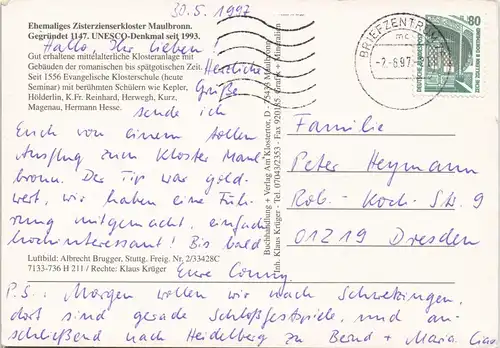 30.5.1997
Ehemaliges Zisterzienserkloster Maulbronn.
Gegründet 1147. UNESCO-Denkmal seit 1993.
Hallo, Ihr Lieben!
Gut erhaltene mittelalterliche Klosteranlage mit
Gebäuden der romanischen bis spätgotischen Zeit.
Seit 1556 Evangelische Klosterschule (heute
Seminar) mit berühmten Schülern wie Kepler,
Hölderlin, K.Fr. Reinhard, Herwegh, Kurz,
Magenau, Hermann Hesse.
Herzliche
Grüße
sende ich
Euch von einem tollen
Ausflug zum Kloster Maul
bronn. Der Tip war gold-
wert, wir haben eine Füh-
rung mitgemacht, einfach
hochinteressant! Bis bald
Luftbild: Albrecht Brugger, Stuttg. Freig. Nr. 2/33428C
7133-736 H 211 / Rechte: Klaus Krüger
Eure Conny
P.S.: Morgen wollen wir nach Schwetzingen,
dort sind gerade Schloßfestspiele, und an-
schließend nach Heidelberg zu Bernd + Maria. Ciao
Buchhandlung + Verlag Am Klostertor, D - 75433 Maulbronn
Inh. Klaus Krüger - Tel. 07043/2353 - Fax 920165 Grafik + Mineralien
BRIEFZENTRUM
-2.6.97
80
DEUTSCHE BUNDESPOST
Familie
Peter Heymann
Rob.-Koch-Str. 9
01219 Dresden